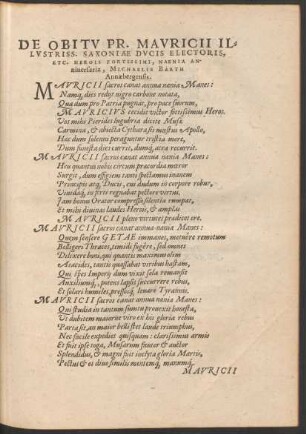 DE OBITV PR. MAVRICII IL-
LVSTRISS. SAXONIAE DVCIS ELECTORIS,
ETC. HEROIS FORTISSIMI, NAENIA AN-
niuersaria, MICHAELIS BARTH
Annæbergensis.
MAVRICII sacros canat annua nænia Manes:
Namq́; dies redijt nigro carbone notata,
Qua dum pro Patria pugnat, pro pace suorum,
MAVRICIVS cecidit victor fortissimus Heros.
Vos mihi Pierides lugubria dicite Musæ
Carmina, & obiecta Cythara sis mœstus Apollo,
Hac dum solenni peraguntur tristia more,
Dum funesta dies currit, dumq́; acta recurrit.
MAVRICII sacros canat annua nænia Manes:
Heu quantus nobis circum præcordia mœror
Surgit, dum effigiem tanti spectamus inanem
Principis atq́; Ducis, cui dudum in corpore robur,
Viuidaq́; in firis regnabat pectore virtus,
Iam bonus Orator compressa silentia rumpat,
Et mihi diuinas laudes Herois, & amplas
MAVRICII plane virtutes prædicet ore.
MAVRICII sacros canat annua nænia Manes:
Quem sensere GETAE immanes, mœnere remotum
Belligeri Thraces, timidi fugere, sed omnes
Delixere boni, qui quantis maximus olim
Aeacides, tantis quassabat viribus hastam,
Qui spes Imperij dum vixit sola remansit
Auxiliumq́;, potens lapsis succurrere rebus,
Et solari humiles, pressosq́; leuare Tyrannis.
MAVRICII sacros canat annua nænia Manes:
Qui studia in tantum sumin prouexit honesta,
Vt dubitem maiorne viro ex his gloria rebus
Parta sit, an maior belli siet laude triumphus,
Nec facile expediet quisquam: clarissimus armis
Et fuit ipse toga, Musarum fautor & auctor
Splendidus, & magni fuit inclyta gloria Martis,
Pectus & os diuæ similis mentemq́;, manumq́;.
MAVRICII